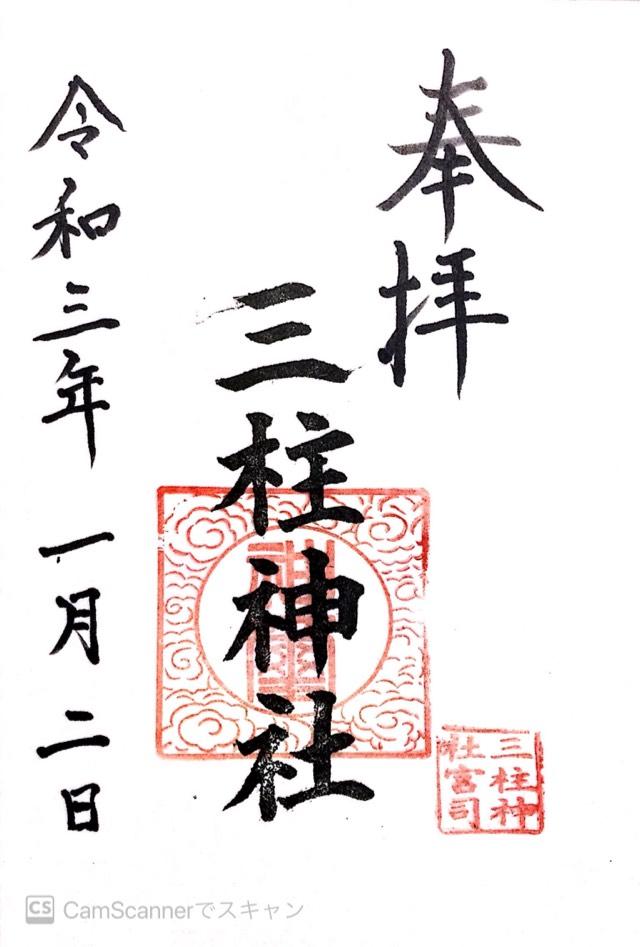 奉拝
三柱神社
令和三年 一月二日
三柱神
社宮司
CamScannerでスキャン